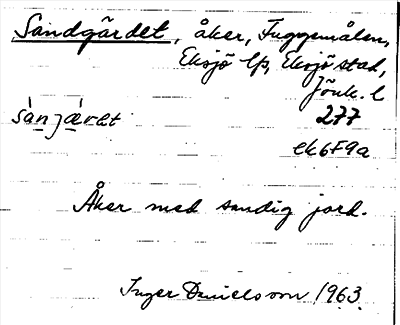 Sandgärdet, åker, Fuggemålen,
Eksjö lfs, Eksjö stad,
Jönk. l
sànjæ̀rdet 277
ek6F9a
Åker med sandig jord.
Inger Danielsson 1963.